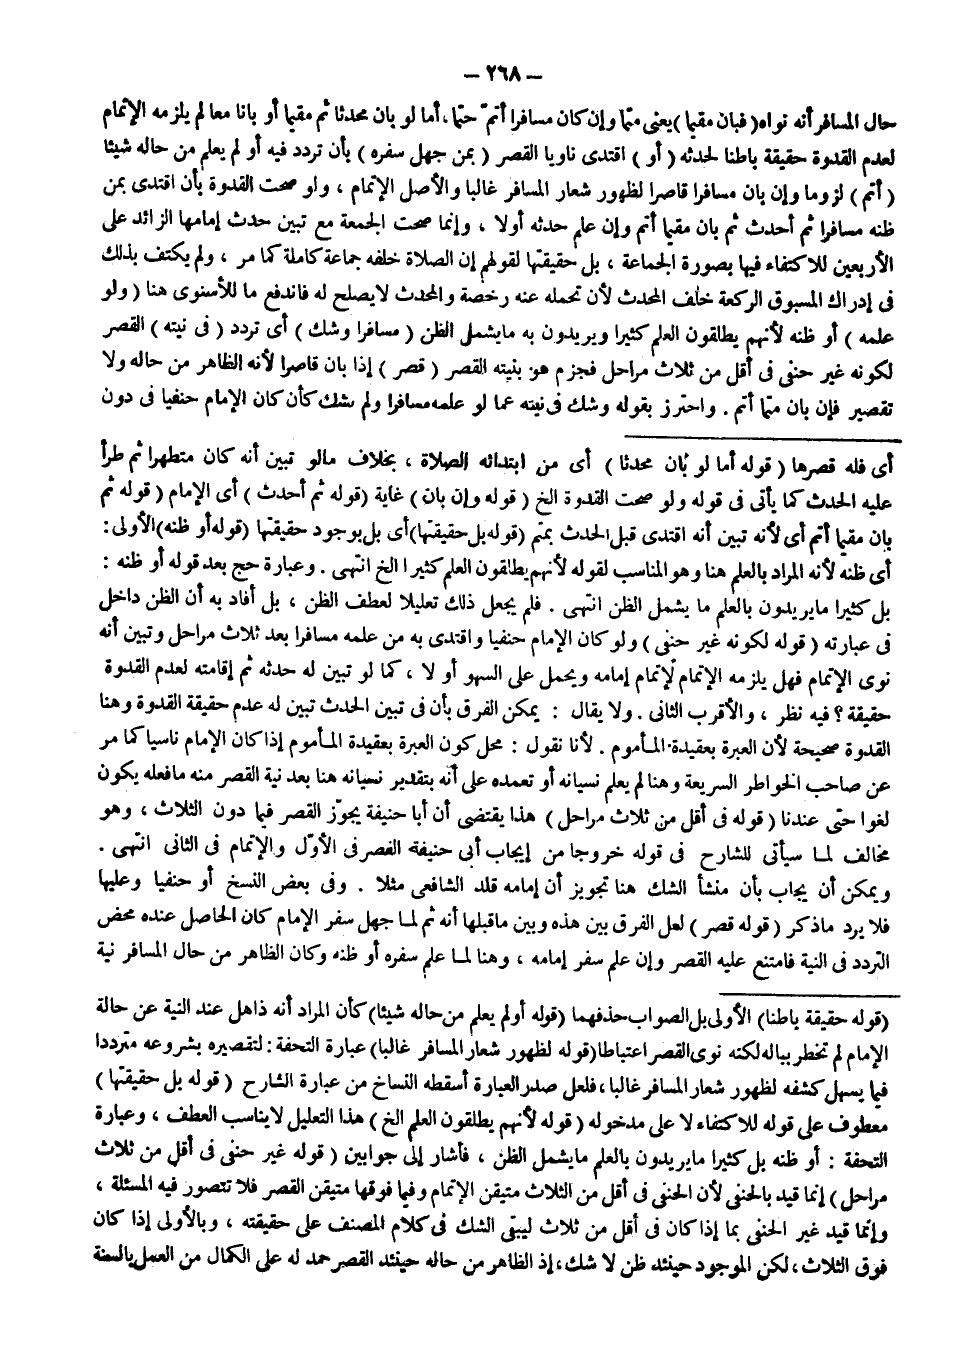 — ٢٦٨ —
حال المسافر أنه نواه (فبان مقيما) يعنى متما وإن كان مسافرا أتمّ حتما ، أما لو بان محدثا ثم مقيما أو بانا معا لم يلزمه الإتمام
لعدم القدوة حقيقة باطنا لحدثه ( أو ) اقتدى ناويا القصر ( بمن جهل سفره ) بأن تردد فيه أو لم يعلم من حاله شيئا
( أتم ) لزوما وإن بان مسافرا قاصرا لظهور شعار المسافر غالبا والأصل الإتمام ، ولو صحت القدوة بأن اقتدى بمن
ظنه مسافرا ثم أحدث ثم بان مقيما أتم وإن علم حدثه أولا ، وإنما صحت الجمعة مع تبين حدث إمامها الزائد على
الأربعين للاكتفاء فيها بصورة الجماعة ، بل حقيقتها لقولهم إن الصلاة خلفه جماعة كاملة كما مر ، ولم يكتف بذلك
فى إدراك المسبوق الركعة خلف المحدث لأن تحمله عنه رخصة والمحدث لا يصلح له فاندفع ما للأسنوى هنا ( ولو
علمه ) أو ظنه لأنهم يطلقون العلم كثيرا ويريدون به ما يشمل الظن ( مسافرا وشك ) أى تردد ( فى نيته ) القصر
لكونه غير حنفى فى أقل من ثلاث مراحل فجزم هو بنيته القصر ( قصر ) إذا بان قاصرا لأنه الظاهر من حاله ولا
تقصير فإن بان متما أتم . واحترز بقوله وشك فى نيته عما لو علمه مسافرا ولم يشك كأن كان الإمام حنفيا فى دون
أى فله قصرها ( قوله أما لو بان محدثا ) أى من ابتدائه الصلاة ، بخلاف مالو تبين أنه كان متطهرا ثم طرأ
عليه الحدث كما يأتى فى قوله ولو صحت القدوة الخ ( قوله وإن بان ) غاية (قوله ثم أحدث ) أى الإمام ( قوله ثم
بان مقيما أتم أى لأنه تبين أنه اقتدى قبل الحدث بمتم (قوله بل حقيقتها) أى بل بوجود حقيقتها (قوله أو ظنه) الأولى :
أى ظنه لأنه المراد بالعلم هنا وهو المناسب لقوله لأنهم يطلقون العلم كثيرا الخ انتهى . وعبارة حج بعد قوله أو ظنه :
بل كثيرا ما يريدون بالعلم ما يشمل الظن انتهى . فلم يجعل ذلك تعليلا لعطف الظن ، بل أفاد به أن الظن داخل
فى عبارته ( قوله لكونه غير حنفى ) ولو كان الإمام حنفيا واقتدى به من علمه مسافرا بعد ثلاث مراحل وتبين أنه
نوى الإتمام فهل يلزمه الإتمام لإتمام إمامه ويحمل على السهو أو لا ، كما لو تبين له حدثه ثم إقامته لعدم القدوة
حقيقة ؟ فيه نظر ، والأقرب الثانى . ولا يقال : يمكن الفرق بأن فى تبين الحدث تبين له عدم حقيقة القدوة وهنا
القدوة صحيحة لأن العبرة بعقيدة المأموم . لأنا نقول : محل كون العبرة بعقيدة المأموم إذا كان الإمام ناسيا كما مر
عن صاحب الخواطر السريعة وهنا لم يعلم نسيانه أو تعمده على أنه بتقدير نسيانه هنا بعد نية القصر منه ما فعله يكون
لغوا حتى عندنا ( قوله فى أقل من ثلاث مراحل ) هذا يقتضى أن أبا حنيفة يجوّز القصر فيما دون الثلاث ، وهو
مخالف لما سيأتى للشارح فى قوله خروجا من إيجاب أبى حنيفة القصر فى الأوّل والإتمام فى الثانى انتهى .
ويمكن أن يجاب بأن منشأ الشك هنا تجويز أن إمامه قلد الشافعى مثلا . وفى بعض النسخ أو حنفيا وعليها
فلا يرد ماذكر ( قوله قصر ) لعل الفرق بين هذه وبين ماقبلها أنه ثم لما جهل سفر الإمام كان الحاصل عنده محض
التردد فى النية فامتنع عليه القصر وإن علم سفر إمامه ، وهنا لما علم سفره أو ظنه وكان الظاهر من حال المسافر نية
(قوله حقيقة باطنا) الأولى بل الصواب حذفهما (قوله أو لم يعلم من حاله شيئا) كأن المراد أنه ذاهل عند النية عن حالة
الإمام لم تخطر بباله لكنه نوى القصر اعتباطا (قوله لظهور شعار المسافر غالبا) عبارة التحفة : لتقصيره بشروعه مترددا
فيما يسهل كشفه لظهور شعار المسافر غالبا ، فلعل صدر العبارة أسقطه النساخ من عبارة الشارح ( قوله بل حقيقتها )
معطوف على قوله للاكتفاء لا على مدخوله ( قوله لأنهم يطلقون العلم الخ ) هذا التعليل لا يناسب العطف ، وعبارة
التحفة : أو ظنه بل كثيرا ما يريدون بالعلم ما يشمل الظن ، فأشار إلى جوابين ( قوله غير حنفى فى أقل من ثلاث
مراحل) إنما قيد بالحنفى لأن الحنفى فى أقل من الثلاث متيقن الإتمام وفيما فوقها متيقن القصر فلا تتصور فيه المسئلة ،
وإنما قيد غير الحنفى بما إذا كان فى أقل من ثلاث ليبقى الشك فى كلام المصنف على حقيقته ، وبالأولى إذا كان
فوق الثلاث ، لكن الموجود حينئذ ظن لا شك ، إذ الظاهر من حاله حينئذ القصر حمد له على الكمال من العمل بالسنة